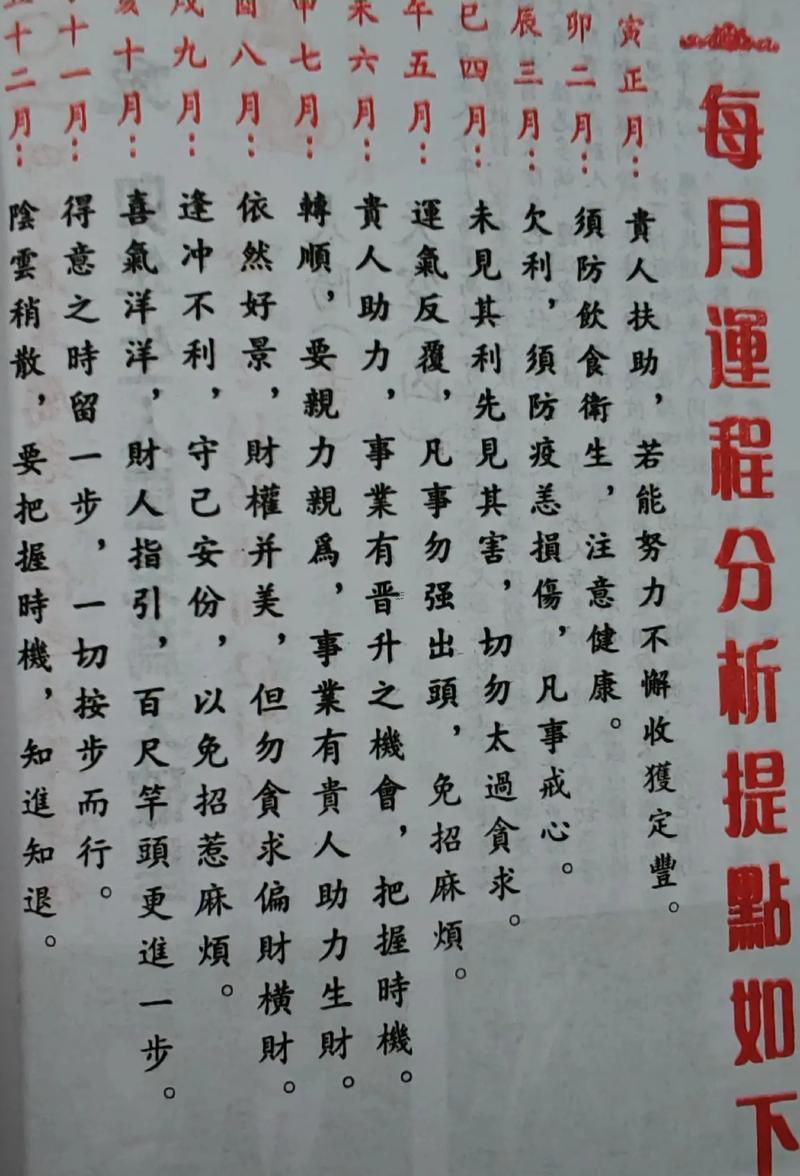 每月運程分析提點如下
寅正月：貴人扶助，若能努力不懈收獲定豐。
卯二月：須防飲食衛生，注意健康。
辰三月：欠利，須防疫恙損傷，凡事戒心。
巳四月：未見其利先見其害，切勿太過貪求。
午五月：運氣反覆，凡事勿强出頭，免招麻煩。
未六月：貴人助力，事業有晋升之機會，把握時機。
申七月：轉順，要親力親爲，事業有貴人助力生財。
酉八月：依然好景，財權并美，但勿貪求偏財橫財。
戌九月：逢冲不利，守己安份，以免招惹麻煩。
亥十月：喜氣洋洋，財人指引，百尺竿頭更進一步。
十一月：得意之時留一步，一切按步而行。
十二月：陰雲稍散，要把握時機，知進知退。